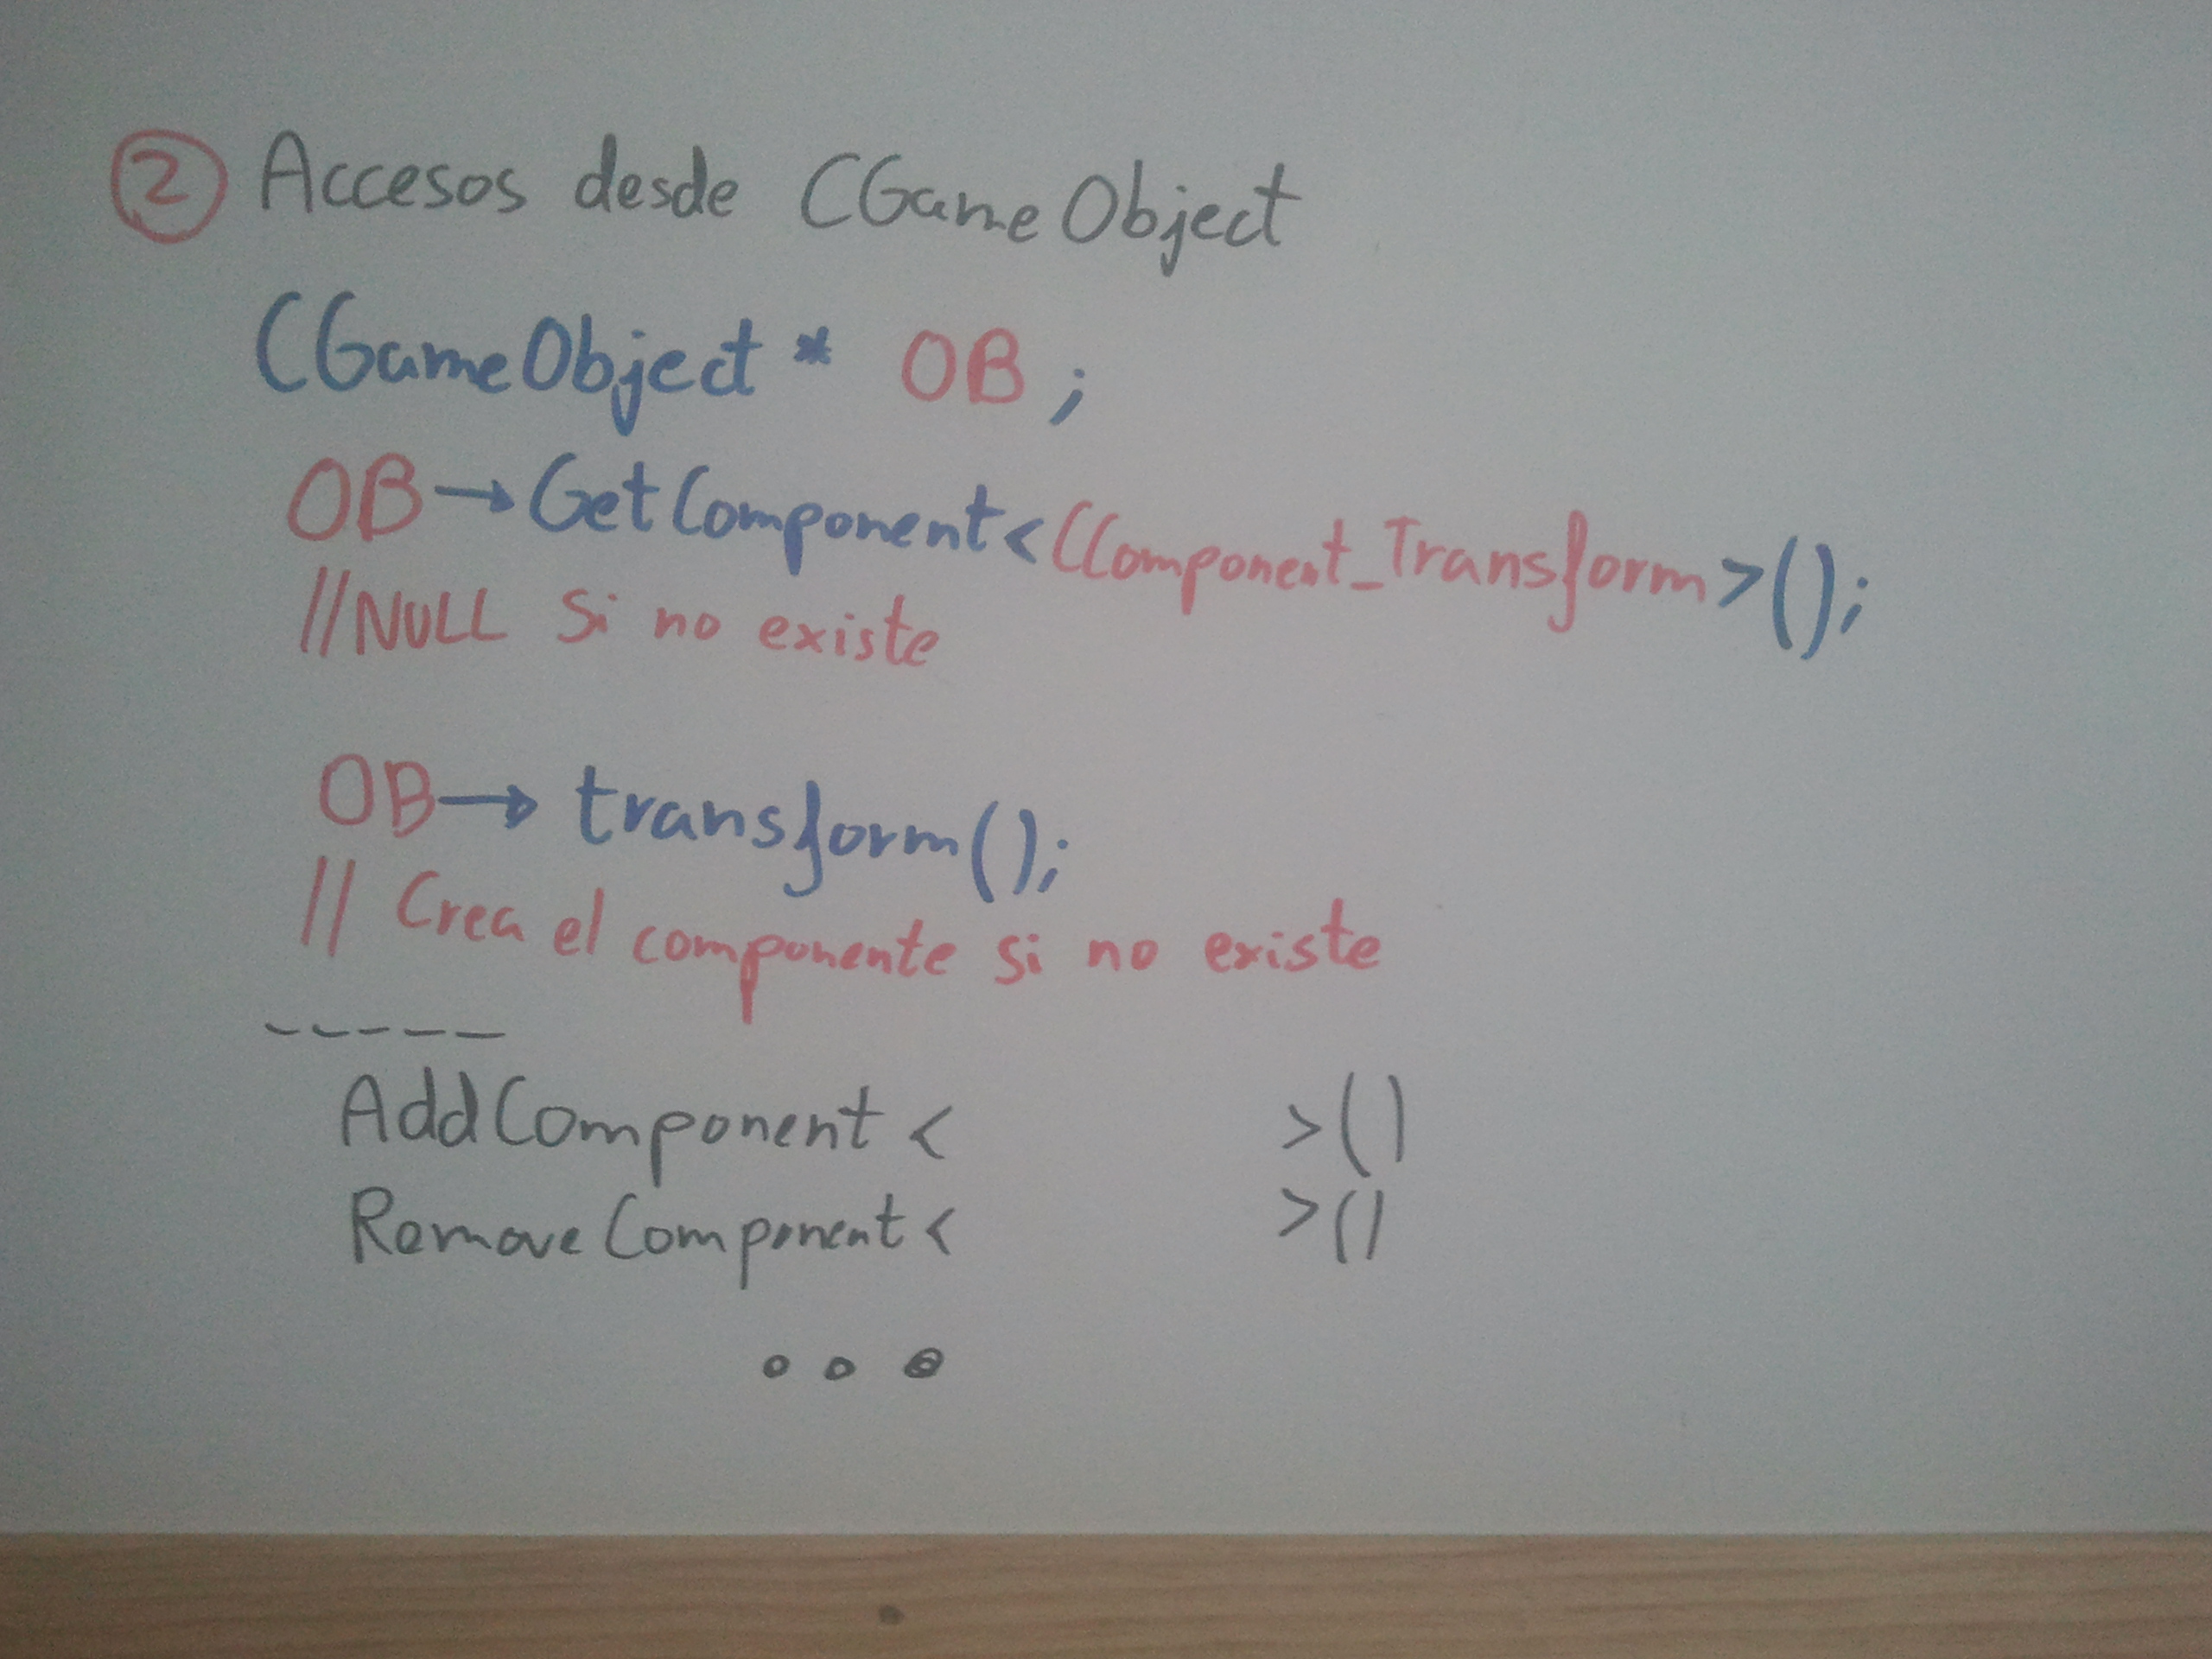 2 Accesos desde CGameObject
CGameObject * OB ;
OB → GetComponent<CComponent_Transform>();
//NULL Si no existe
OB → transform();
// Crea el componente si no existe
-----
AddComponent < >()
RemoveComponent < >()
...